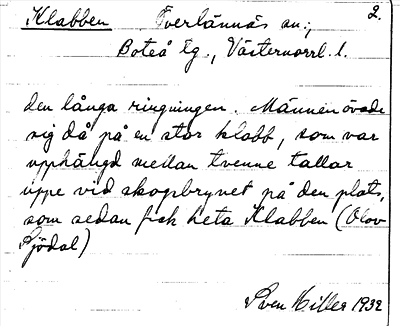 Klabben Överlännäs sn.; 2.
Boteå tg., Västernorrl. l.
den långa ringningen. Männen övade
sig då på en stor klabb, som var
upphängd mellan tvenne tallar
uppe vid skogsbrynet på den plats,
som sedan fick heta Klabben (Olov
Sjödal)
Sven Hiller 1932